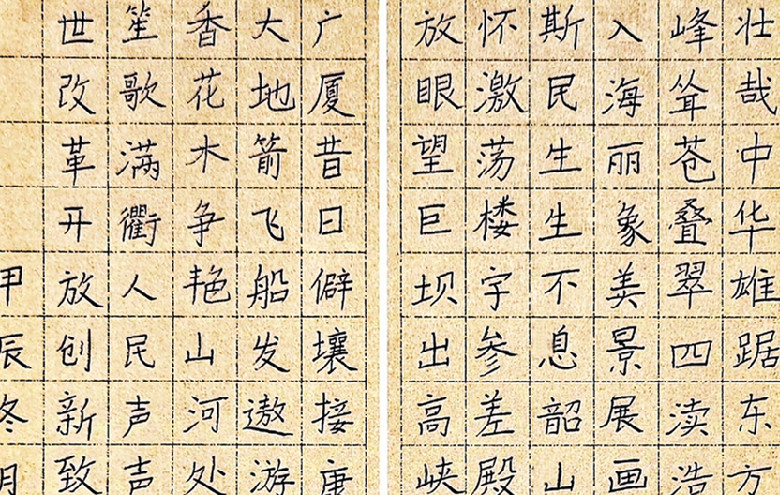 壮哉中华雄踞东方
峰耸苍叠翠四渎浩
入海丽象美景展画
斯民生生不息韶山
怀激荡楼宇参差殿
放眼望巨坝出高峡
广厦昔日僻壤接康
大地箭飞船发遨游
香花木争艳山河处
笙歌满衢人民声声
世改革开放创新致
甲辰冬月